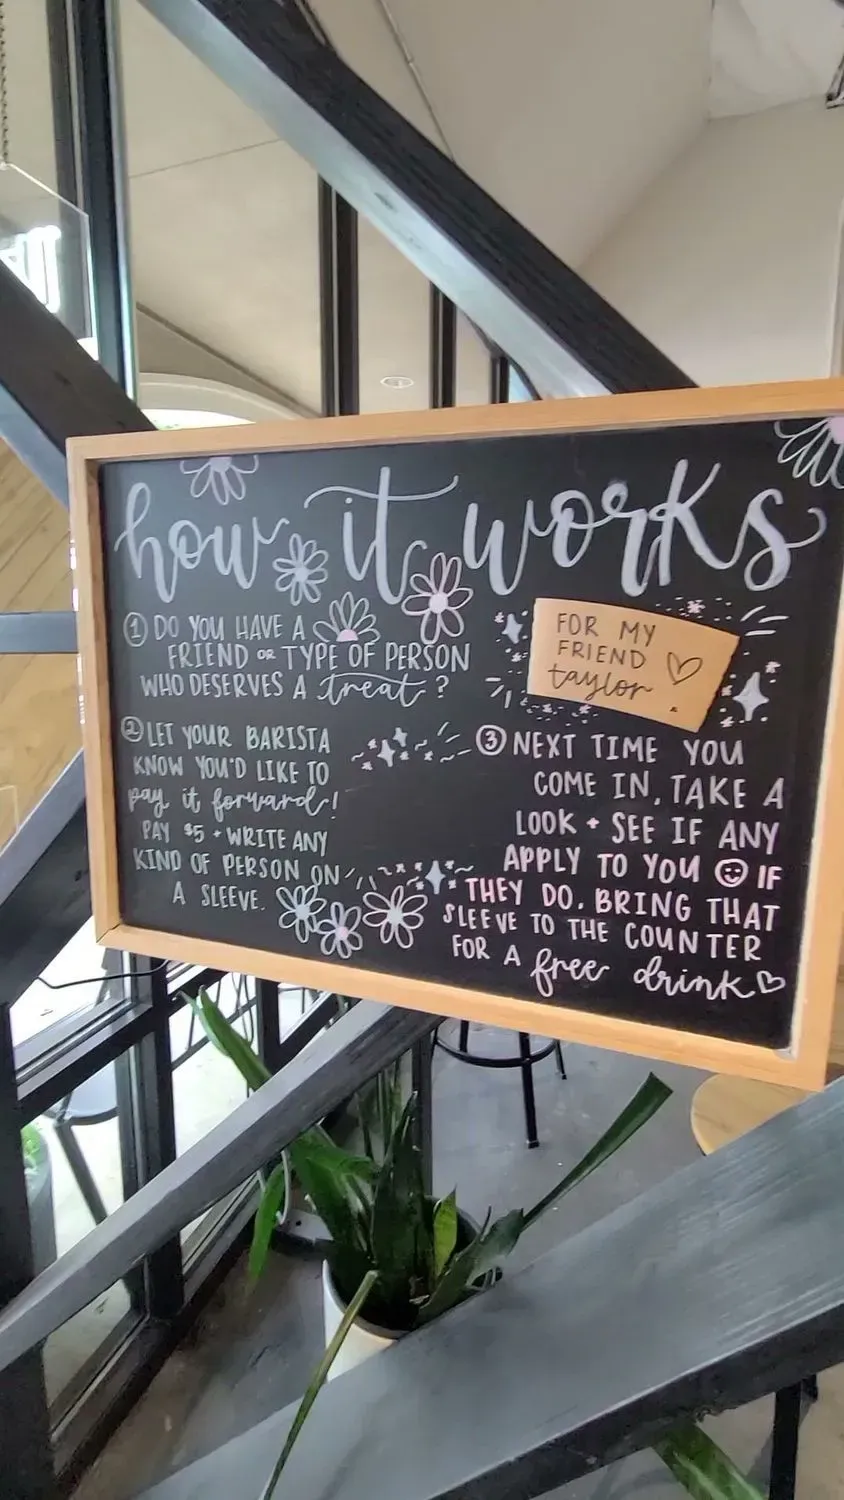 how it works
① DO YOU HAVE A
FRIEND OR TYPE OF PERSON
WHO DESERVES A treat?
② LET YOUR BARISTA
KNOW YOU'D LIKE TO
pay it forward!
PAY $5 + WRITE ANY
KIND OF PERSON ON
A SLEEVE.
FOR MY
FRIEND
taylor
③ NEXT TIME YOU
COME IN, TAKE A
LOOK + SEE IF ANY
APPLY TO YOU ☺ IF
THEY DO, BRING THAT
SLEEVE TO THE COUNTER
FOR A free drink ♡